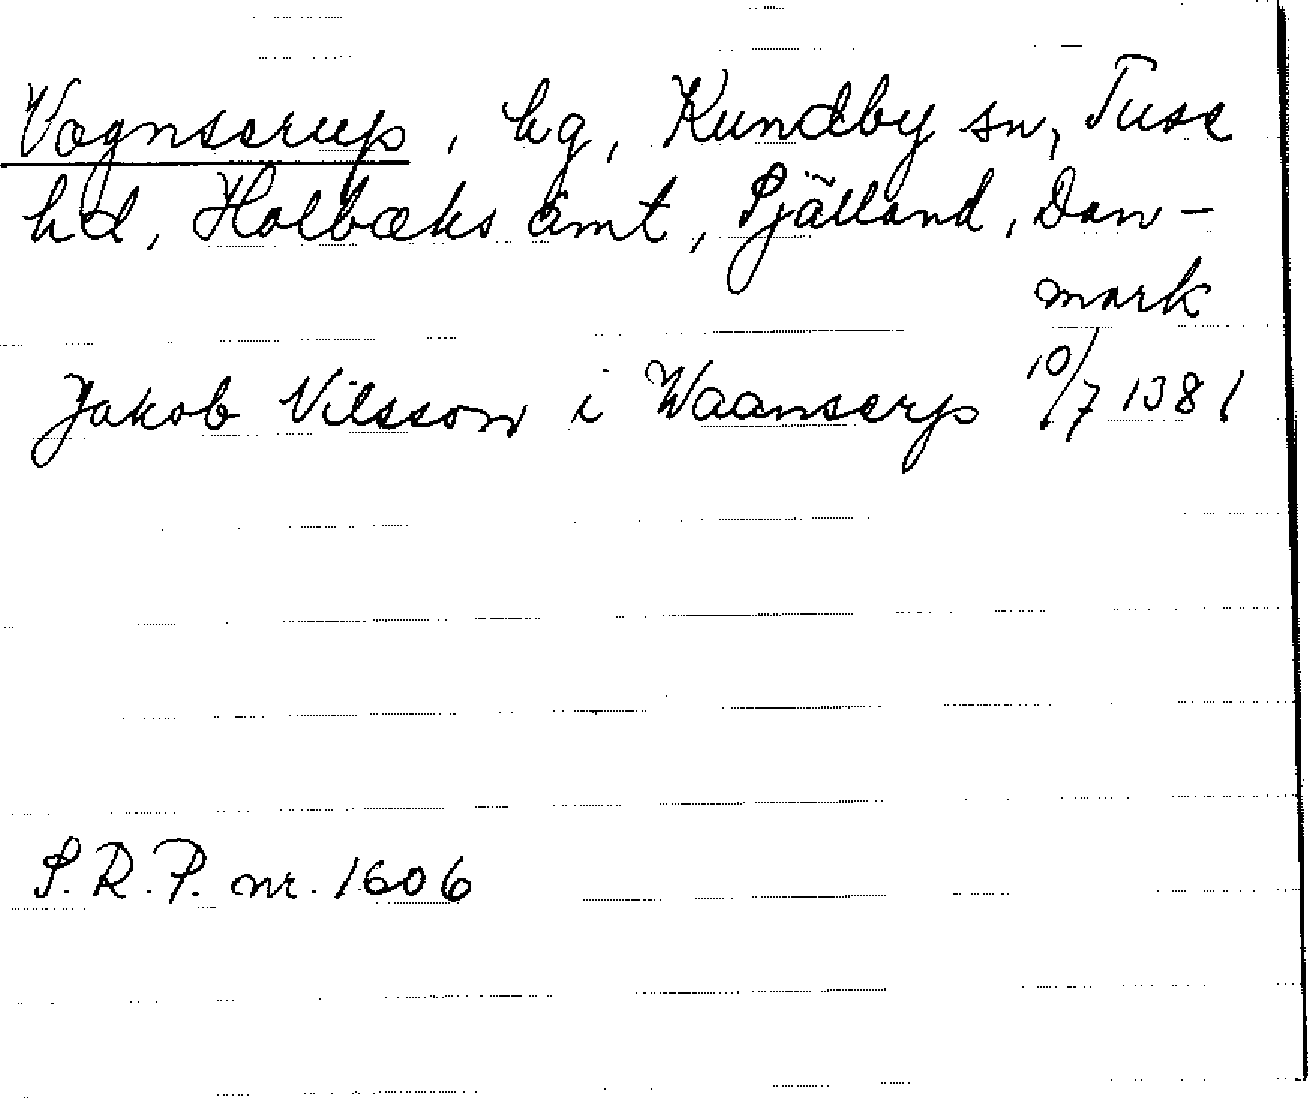 Vognserup, hg, Kundby sn, Tuse
hd, Holbæks amt, Själland, Dan-
mark
Jakob Nilsson i Waanserp 10/7 1381
S.R.P. nr. 1606